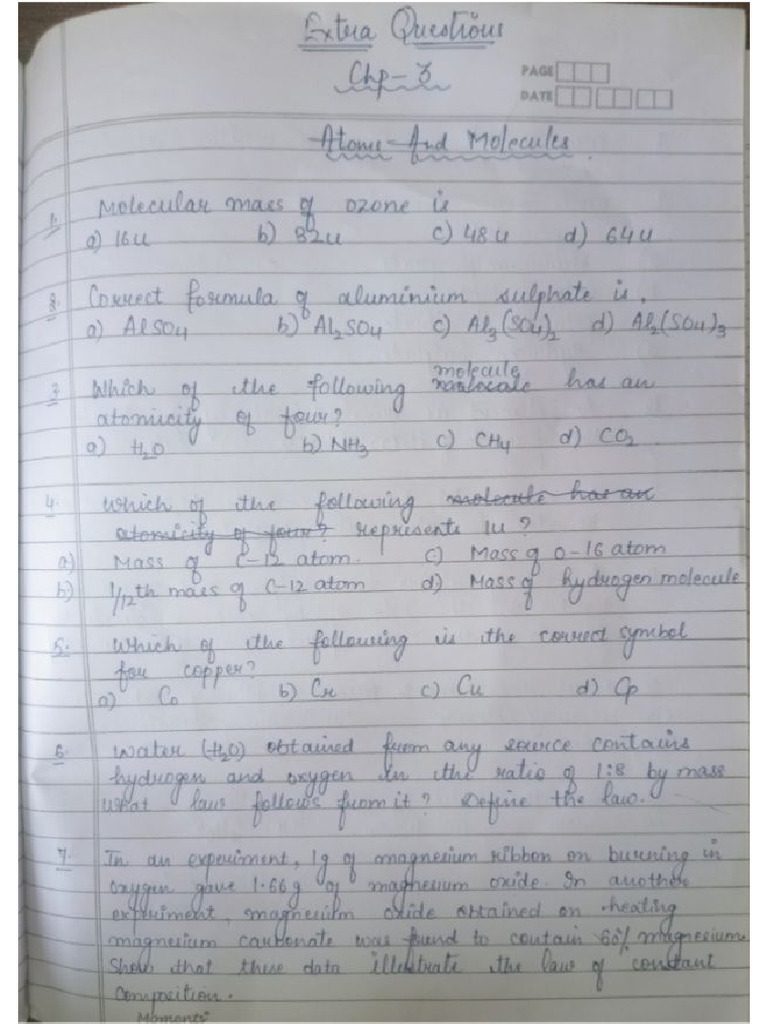 Extra Questions
Chp-3
PAGE
DATE
Atoms And Molecules.
1. Molecular mass of ozone is
a) 16u b) 32u c) 48u d) 64u
2. Correct formula of aluminium sulphate is.
a) AlSO4 b) Al2SO4 c) Al3(SO4)2 d) Al2(SO4)3
molecule
3. Which of the following has an
atomicity of four?
a) H2O b) NH3 c) CH4 d) CO2
4. Which of the following molecule has an
atomicity of four? represents 1u?
a) Mass of C-12 atom. c) Mass of O-16 atom
b) 1/12th mass of C-12 atom d) Mass of hydrogen molecule
5. Which of the following is the correct symbol
for copper?
a) Co b) Cr c) Cu d) Cp
6. Water (H2O) obtained from any source contains
hydrogen and oxygen in the ratio of 1:8 by mass
what law follows from it? Define the law.
7. In an experiment, 1g of magnesium ribbon on burning in
oxygen gave 1.66g of magnesium oxide. In another
experiment, magnesium oxide obtained on heating
magnesium carbonate was found to contain 60% magnesium.
Show that these data illustrate the law of constant
composition.
Moments